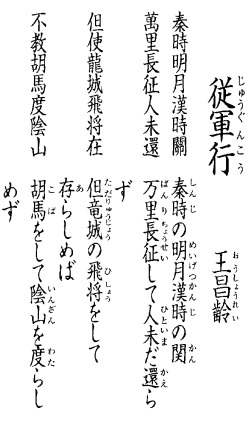 従軍行
じゅうぐんこう
王昌齢
おうしょうれい
秦時明月漢時關
萬里長征人未還
但使龍城飛将在
不教胡馬度陰山
秦時の明月漢時の関
しんじ めいげつかんじ かん
万里長征して人未だ還ら
ばんりちょうせい ひといま かえ
ず
但竜城の飛将をして
ただりゅうじょう ひしょう
存らしめば
あ
胡馬をして陰山を度らし
こば いんざん わた
めず